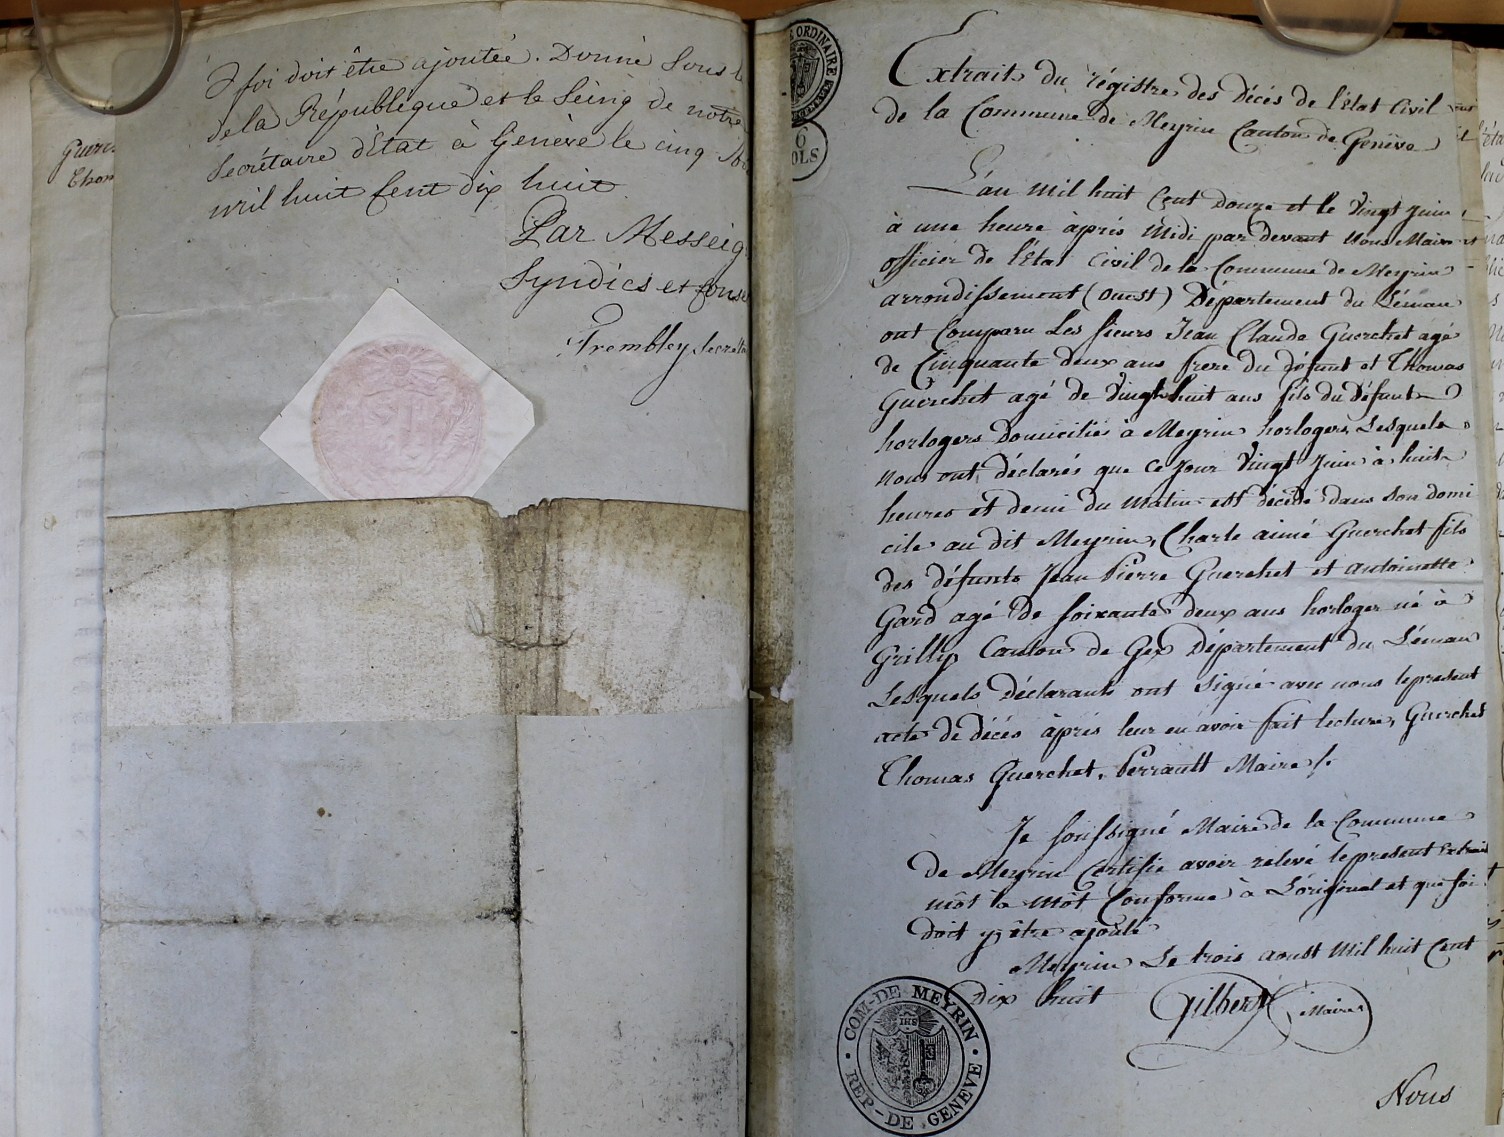 Guerc
Thom
foi doit être ajoutée. Donné sous l
de la République et le seing de notre
Secrétaire d'Etat à Genève le cinq
mil huit Cent dix huit
Par Messeig
Syndics et Conse
Trembley Secréta
E ORDINAIRE
6
OLS
Extrait du régistre des décés de l'Etat Civil
de la Commune de Meyrin Canton de Genève
L'an mil huit Cent douze et le vingt Juin
à une heure àprés Midi par devant Nous Maire et
officier de l'Etat Civil de la Commune de Meyrin
arrondissement (ouest) Département du Léman
ont Comparu Les sieurs Jean Claude Guerchet agé
de Cinquante deux ans frere du défunt et Thomas
Guerchet agé de vingt huit ans fils du défunt
horlogers Domiciliés à Meyrin horlogers, Lesquels
nous ont déclarés que Ce jour vingt Juin à huit
heures et demi du Matin est décédé dans son domi
cile au dit Meyrin, Charle aimé Guerchet fils
des défunts Jean Pierre Guerchet et antoinette
Gard agé de soixante deux ans horloger né à
Grilly Canton de Gex Département du Léman
Lesquels déclarants ont signé avec nous le present
acte de décés àprés leur en avoir fait lecture, Guerchet
Thomas Guerchet, Perrault Maire /.
Je soussigné Maire de la Commune
de Meyrin Certifie avoir relevé le present Extrait
môt à môt Conforme à L'original et que foi
doit y être ajouté
Meyrin Le trois aoust Mil huit Cent
Dix huit Gilbert Maire
COM-DE MEYRIN
IHS
REP-DE GENEVE
Nous